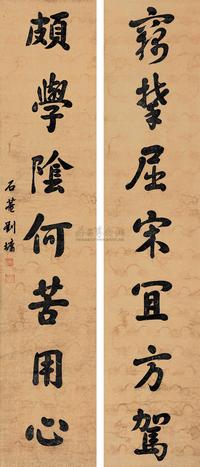 竊攀屈宋宜方駕
頗學陰何苦用心
石菴劉墉